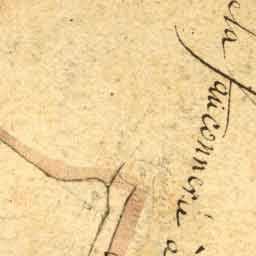 la fauconnerie à